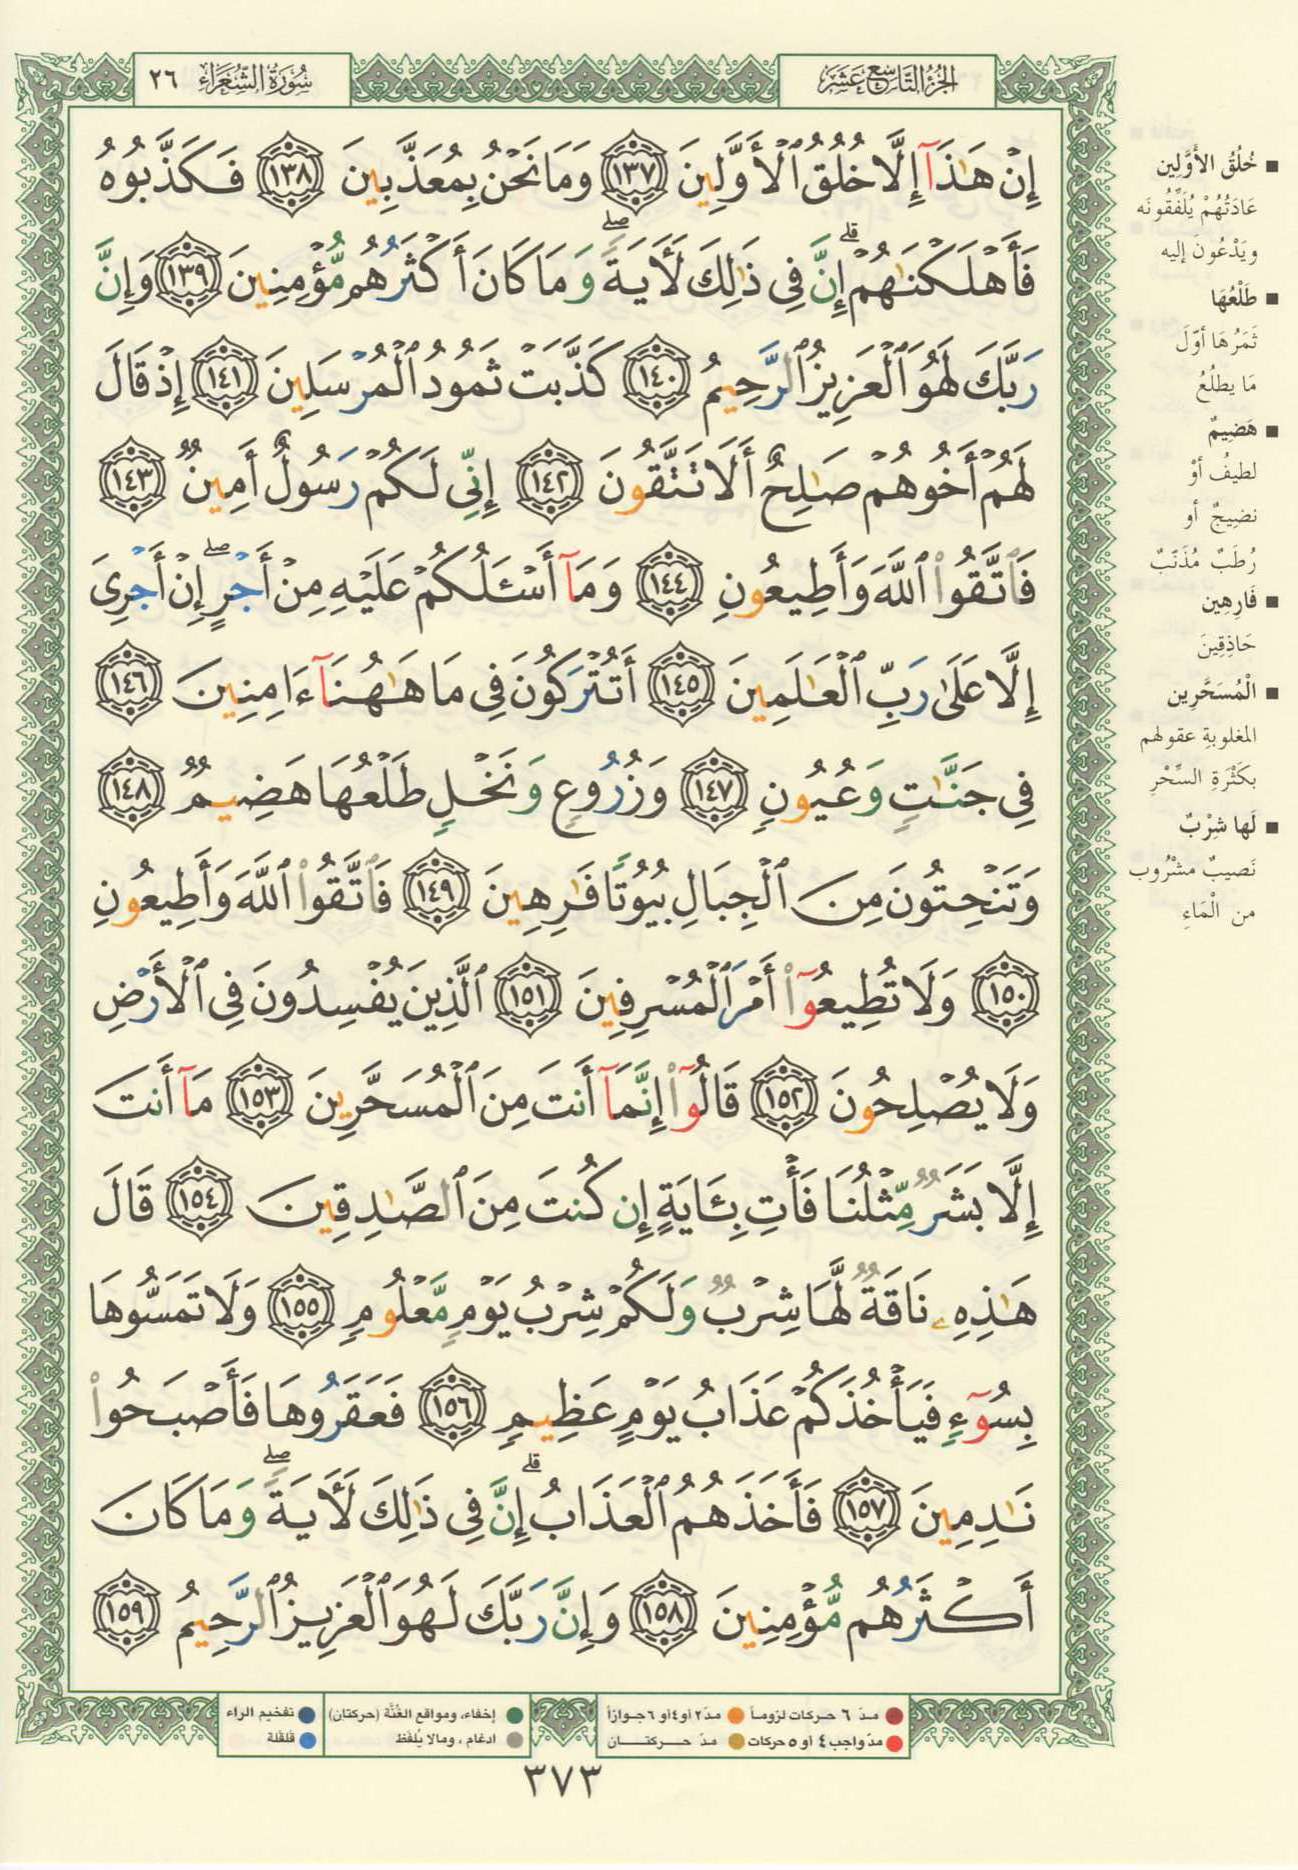 الجُزْءُ التَّاسِعَ عَشَرَ
سُورَةُ الشُّعَرَاء ٢٦
إِنْ هَٰذَآ إِلَّا خُلُقُ ٱلْأَوَّلِينَ ١٣٧ وَمَا نَحْنُ بِمُعَذَّبِينَ ١٣٨ فَكَذَّبُوهُ
فَأَهْلَكْنَٰهُمْ ۗ إِنَّ فِى ذَٰلِكَ لَـَٔايَةً ۖ وَمَا كَانَ أَكْثَرُهُم مُّؤْمِنِينَ ١٣٩ وَإِنَّ
رَبَّكَ لَهُوَ ٱلْعَزِيزُ ٱلرَّحِيمُ ١٤٠ كَذَّبَتْ ثَمُودُ ٱلْمُرْسَلِينَ ١٤١ إِذْ قَالَ
لَهُمْ أَخُوهُمْ صَٰلِحٌ أَلَا تَتَّقُونَ ١٤٢ إِنِّى لَكُمْ رَسُولٌ أَمِينٌ ١٤٣
فَٱتَّقُوا۟ ٱللَّهَ وَأَطِيعُونِ ١٤٤ وَمَآ أَسْـَٔلُكُمْ عَلَيْهِ مِنْ أَجْرٍ ۖ إِنْ أَجْرِىَ
إِلَّا عَلَىٰ رَبِّ ٱلْعَٰلَمِينَ ١٤٥ أَتُتْرَكُونَ فِى مَا هَٰهُنَآ ءَامِنِينَ ١٤٦
فِى جَنَّٰتٍ وَعُيُونٍ ١٤٧ وَزُرُوعٍ وَنَخْلٍ طَلْعُهَا هَضِيمٌ ١٤٨
وَتَنْحِتُونَ مِنَ ٱلْجِبَالِ بُيُوتًا فَٰرِهِينَ ١٤٩ فَٱتَّقُوا۟ ٱللَّهَ وَأَطِيعُونِ
١٥٠ وَلَا تُطِيعُوٓا۟ أَمْرَ ٱلْمُسْرِفِينَ ١٥١ ٱلَّذِينَ يُفْسِدُونَ فِى ٱلْأَرْضِ
وَلَا يُصْلِحُونَ ١٥٢ قَالُوٓا۟ إِنَّمَآ أَنتَ مِنَ ٱلْمُسَحَّرِينَ ١٥٣ مَآ أَنتَ
إِلَّا بَشَرٌ مِّثْلُنَا فَأْتِ بِـَٔايَةٍ إِن كُنتَ مِنَ ٱلصَّٰدِقِينَ ١٥٤ قَالَ
هَٰذِهِۦ نَاقَةٌ لَّهَا شِرْبٌ وَلَكُمْ شِرْبُ يَوْمٍ مَّعْلُومٍ ١٥٥ وَلَا تَمَسُّوهَا
بِسُوٓءٍ فَيَأْخُذَكُمْ عَذَابُ يَوْمٍ عَظِيمٍ ١٥٦ فَعَقَرُوهَا فَأَصْبَحُوا۟
نَٰدِمِينَ ١٥٧ فَأَخَذَهُمُ ٱلْعَذَابُ ۗ إِنَّ فِى ذَٰلِكَ لَـَٔايَةً ۖ وَمَا كَانَ
أَكْثَرُهُم مُّؤْمِنِينَ ١٥٨ وَإِنَّ رَبَّكَ لَهُوَ ٱلْعَزِيزُ ٱلرَّحِيمُ ١٥٩
■ خُلُقُ الأَوَّلِين
عَادَتُهُمْ يُلَفِّقُونَه
ويَدْعُونَ إليه
■ طَلْعُهَا
ثَمَرُهَا أوّلَ
مَا يطلُعُ
■ هَضِيمٌ
لطيفٌ أوْ
نضِيجٌ أو
رُطَبٌ مُذَنّبٌ
■ فَارِهِين
حَاذِقِينَ
■ الْمُسَحَّرِين
المغلوبةِ عقولهم
بكَثْرَةِ السِّحْرِ
■ لَها شِرْبٌ
نَصيبٌ مشْرُوب
من الْمَاءِ
مدّ ٦ حركات لزوماً ● مدّ٢ أو٤أو ٦جوازاً
مدّ واجب٤ أو ٥ حركات ● مدّ حـركتـــان
إخفاء، ومواقع الغُنَّة (حركتان) ● تفخيم الراء
ادغام ، ومالا يُلفَظ ● قلقلة
٣٧٣